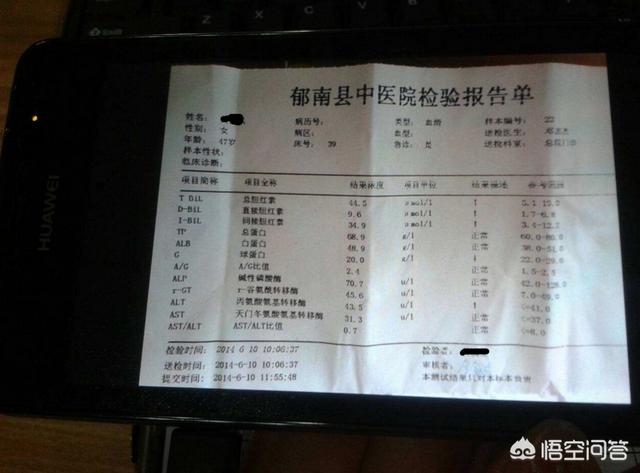 郁南县中医院检验报告单
姓名: 病历号: 类型: 血清 样本编号: 22
性别: 女 病区: 血型: 送检医生:
年龄: 47岁 床号: 39 急诊: 是 送检科室:
样本性状:
临床诊断:
项目简称 项目全称 结果浓度 项目单位 结果描述 参考范围
T BIL 总胆红素 44.5 umol/l ↑ 5.1-19.0
D-BiL 直接胆红素 9.6 umol/l ↑ 1.7-6.8
I-BiL 间接胆红素 34.9 umol/l ↑
TP 总蛋白 68.9 g/l 正常
ALB 白蛋白 48.9 g/l 正常
G 球蛋白 20.0 g/l
A/G A/G比值 2.4 正常
ALP 碱性磷酸酶 70.7 u/l 正常
r-GT r-谷氨酰转移酶 45.6 u/l 正常
ALT 丙氨酸氨基转移酶 43.5 u/l ↑ <=41.0
AST 天门冬氨酸氨基转移酶 31.3 u/l 正常 <=37.0
AST/ALT AST/ALT比值 0.7 正常 <=8.0
检验时间: 2014 6 10 10:06:37 检验者:
送检时间: 2014-6-10 10:06:37 审核者:
提交时间: 2014-6-10 11:55:48 本测试结果只对本标本负责
HUAWEI
悟空问答